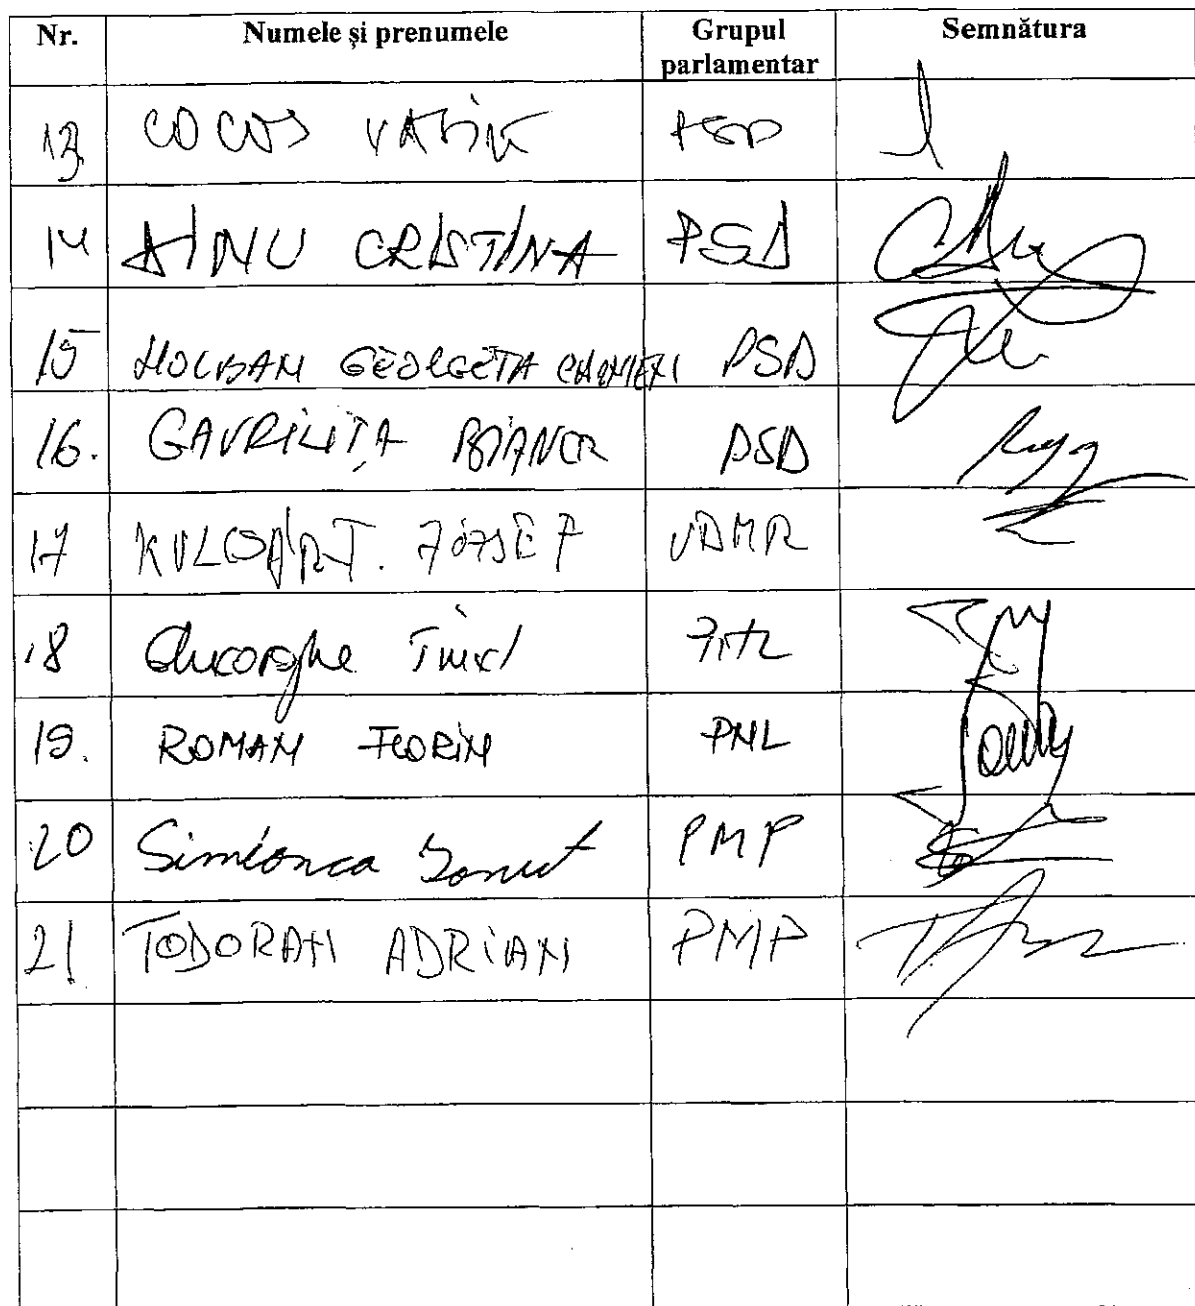 Nr. Numele și prenumele Grupul parlamentar Semnătura
13 COCOȘ VASILE PSD
14 DINU CRISTINA PSD
15 HOLBAN GEORGETA CARMEN PSD
16. GAVRILIȚĂ BIANCA PSD
17 KULCSÁR T. JÓZSEF UDMR
18 Gheorghe Tinel
19. ROMAN FLORIN PNL
20 Simionca Ionuț PMP
21 TODORAN ADRIAN PMP